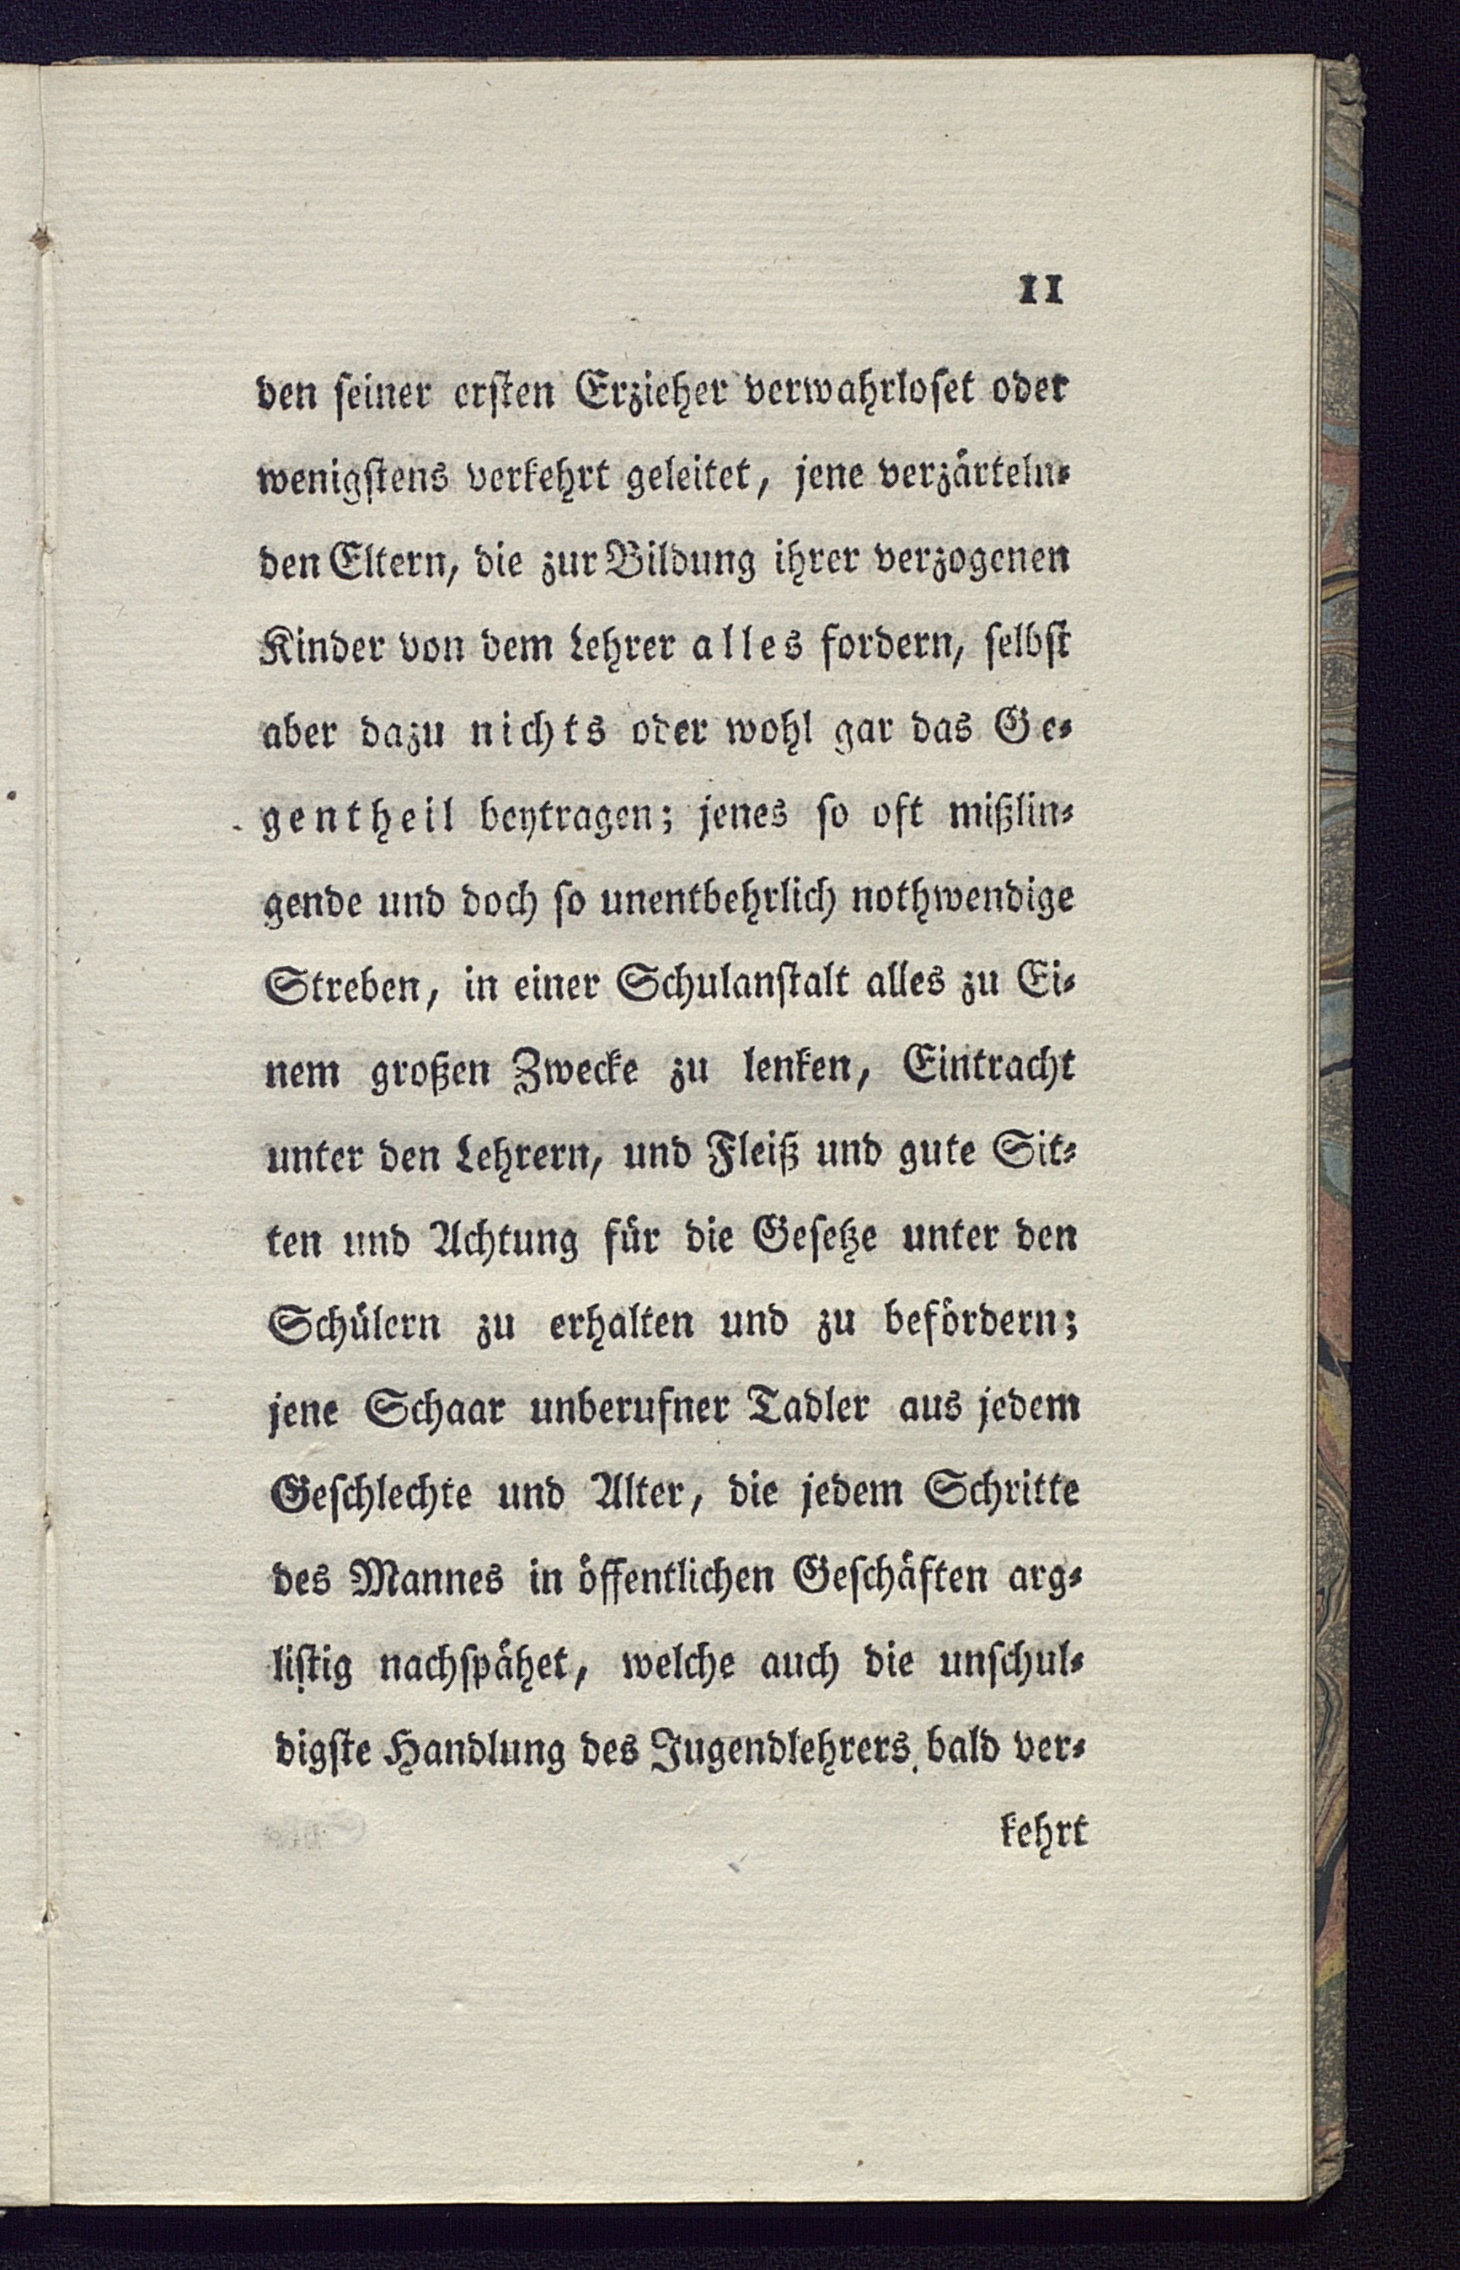 11
den seiner ersten Erzieher verwahrloset oder
wenigstens verkehrt geleitet, jene verzärteln-
den Eltern, die zur Bildung ihrer verzogenen
Kinder von dem Lehrer alles fordern, selbst
aber dazu nichts oder wohl gar das Ge-
gentheil beytragen; jenes so oft mißlin-
gende und doch so unentbehrlich nothwendige
Streben, in einer Schulanstalt alles zu Ei-
nem großen Zwecke zu lenken, Eintracht
unter den Lehrern, und Fleiß und gute Sit-
ten und Achtung für die Gesetze unter den
Schülern zu erhalten und zu befördern;
jene Schaar unberufner Tadler aus jedem
Geschlechte und Alter, die jedem Schritte
des Mannes in öffentlichen Geschäften arg-
listig nachspähet, welche auch die unschul-
digste Handlung des Jugendlehrers bald ver-
kehrt